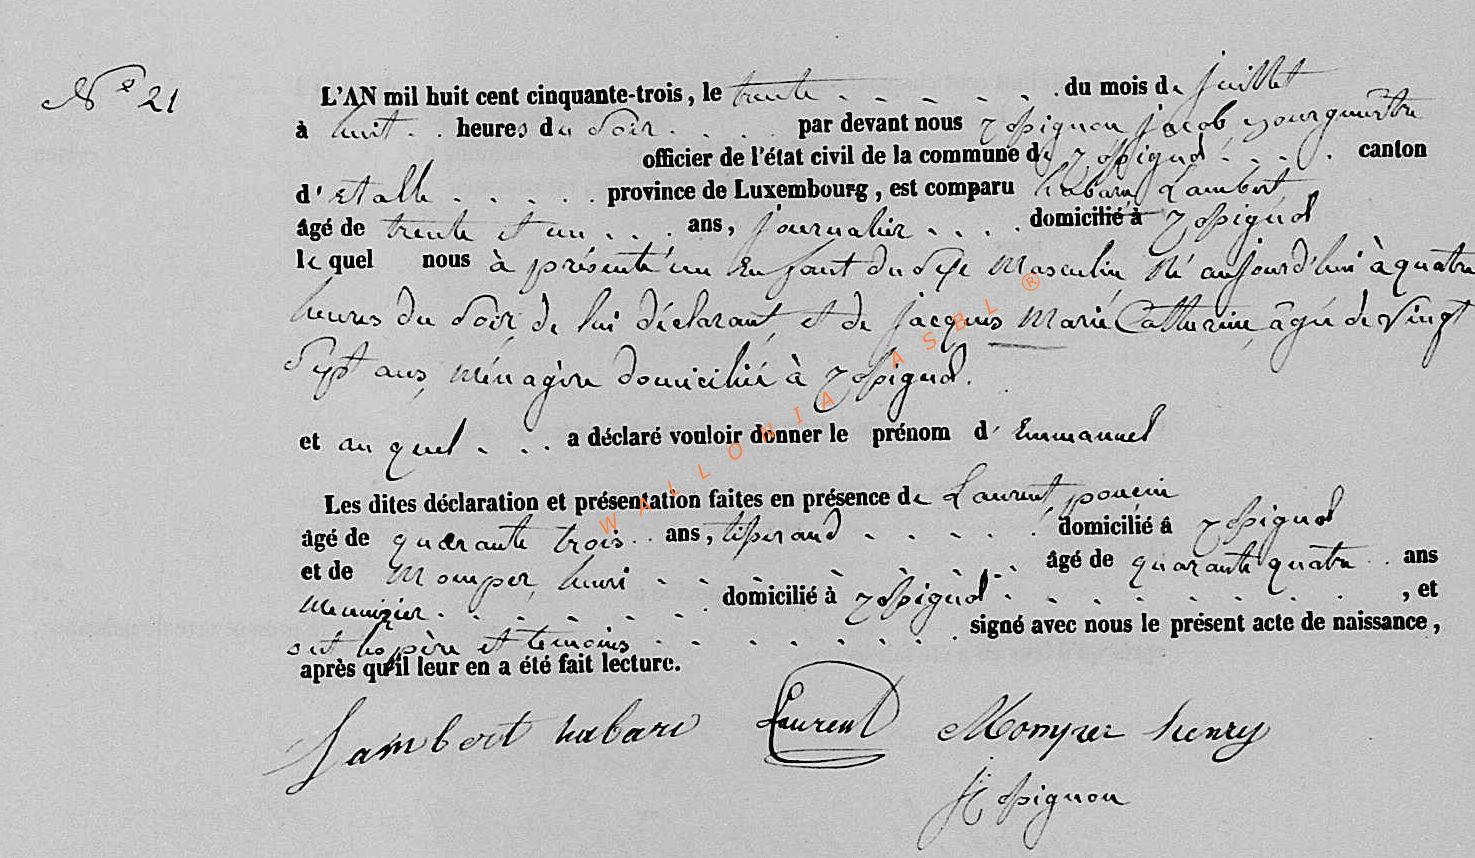 N° 21
L'AN mil huit cent cinquante-trois, le trente . . . . . . du mois de juillet
à huit . . heures du soir . . . . par devant nous jacob bourgumêstre
officier de l'état civil de la commune de . . . . canton
d'Etalle . . . . . province de Luxembourg, est comparu Lambert
âgé de trente et un . . . ans, journalier . . . . domicilié à
le quel nous à présenté un Enfant du Sexe Masculin Né aujourd'hui à quatre
heures du Soir de lui déclarant, et de jacques Marie Catherine, âgée de Vingt
Sept ans, Ménagère domiciliée à
et au quel . . . a déclaré vouloir donner le prénom d'Emmanuel
Les dites déclaration et présentation faites en présence de Laurent poncin
âgé de quarante trois . . ans, tisserand . . . . . domicilié à
et de Momper, henri . . . . . . . âgé de quarante quatre . . ans
Menuizier . . . . . . domicilié à . . . . . . . . , et
ont les père et temoins . . . . . . . signé avec nous le présent acte de naissance,
après qu'il leur en a été fait lecture.
Lambert Laurent Momper henry
WALLONIA ASBL ®